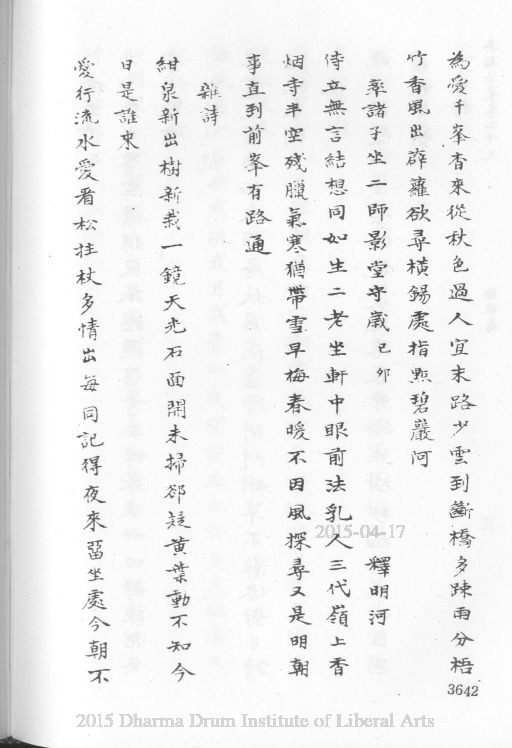 為愛千峯杳來從秋色過人宜末路少雲到斷橋多踈雨分梧
竹香風出薜蘿欲尋橫錫處指點碧巖阿
率諸子坐二師影堂守歲 己卯 釋明河
侍立無言結想同如生二老坐軒中眼前法乳人三代嶺上香
烟寺半空殘臘氣寒猶帶雪早梅春暖不因風探尋又是明朝
事直到前峯有路通
雜詩
紺泉新出樹新栽一鏡天光石面開未掃卻疑黃葉動不知今
日是誰來
愛行流水愛看松拄杖多情出每同記得夜來留坐處今朝不
3642
2015-04-17
2015 Dharma Drum Institute of Liberal Arts